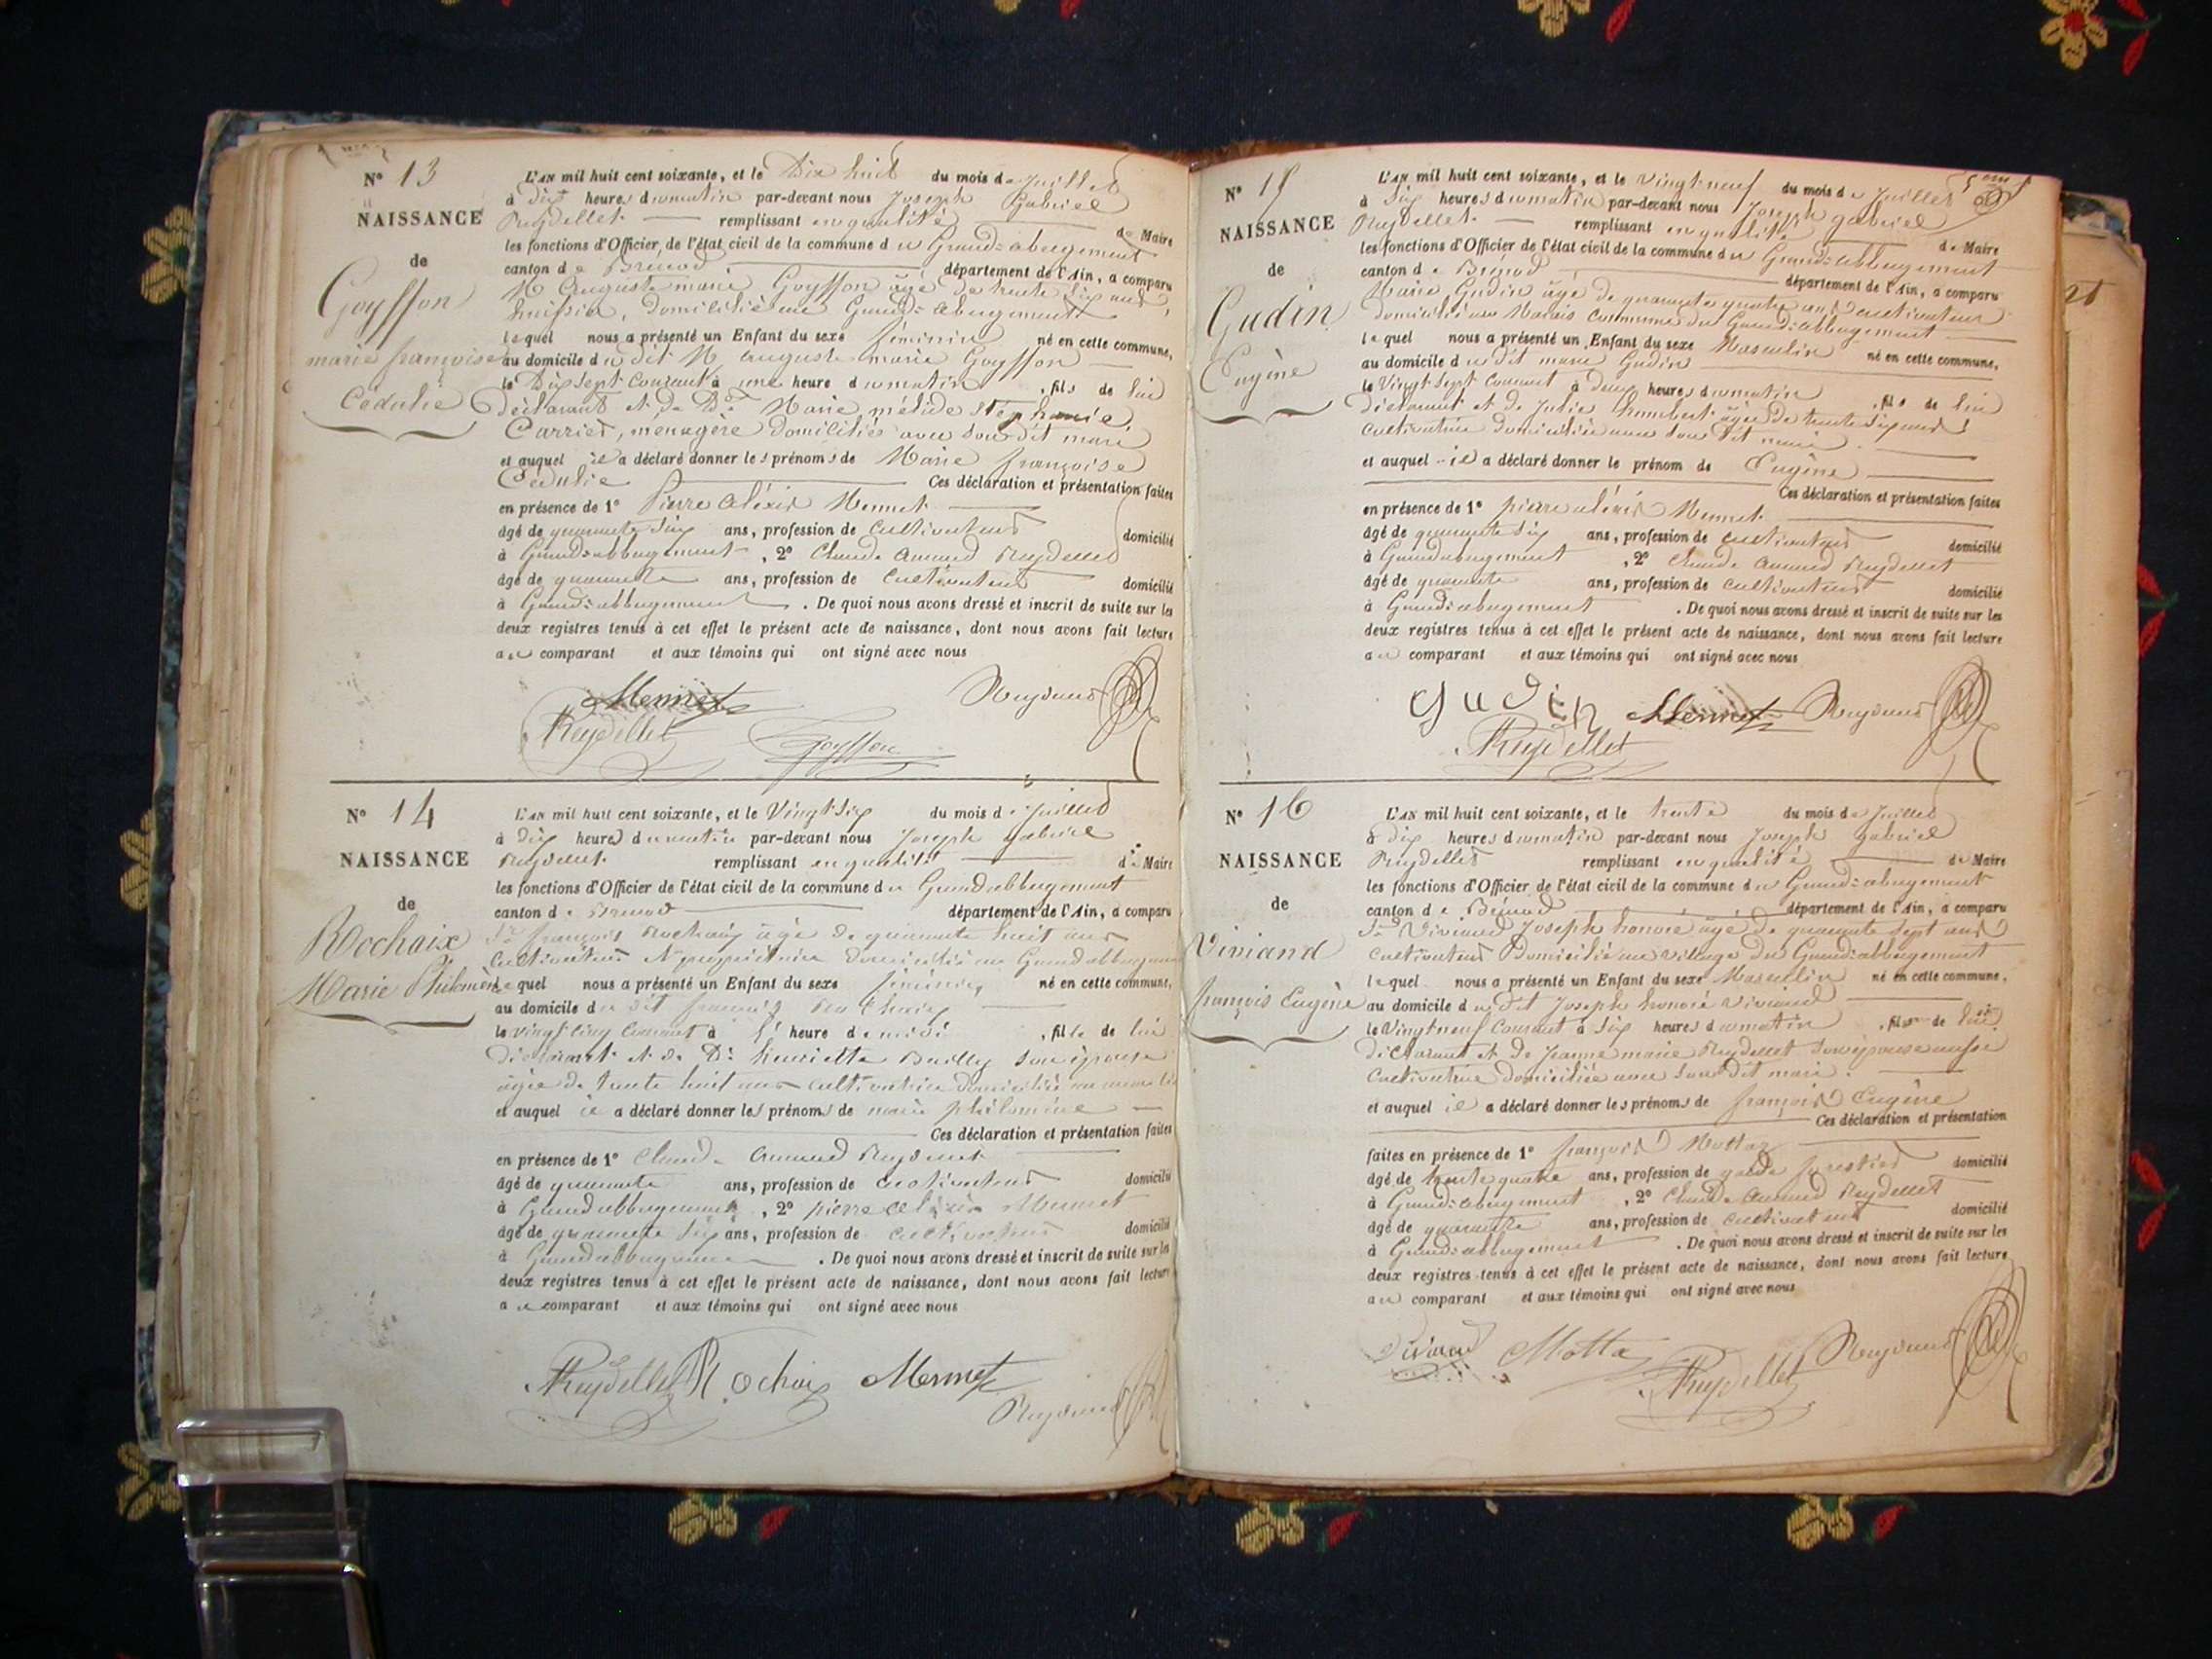 N° 13
NAISSANCE
de
Goyffon
marie françoise
Cédulie
L'AN mil huit cent soixante, et le Dix huit du mois de Juillet
à dix heures du matin par-devant nous Joseph Gabriel
Reydellet remplissant en qualité de Maire
les fonctions d'Officier de l'état civil de la commune du Grand-abergement
canton de Brénod département de l'Ain, a comparu
M Auguste marie Goyffon âgé de trente six ans,
huissier, domicilié au Grand-abergement
lequel nous a présenté un Enfant du sexe féminin né en cette commune,
au domicile du dit M auguste marie Goyffon
le Dix sept Courant à une heure du matin, fils de lui
déclarant et de De Marie mélide stéphanie
Carrier, menagère domiciliée avec son dit mari
et auquel il a déclaré donner les prénoms de Marie françoise
Cédulie Ces déclaration et présentation faites
en présence de 1° Pierre aléxis Mermet
âgé de quarante six ans, profession de Cultivateur domicilié
à Grand-abbergement, 2° Claude Armand Reydellet
âgé de quarante ans, profession de Cultivateur domicilié
à Grand-abbergement. De quoi nous avons dressé et inscrit de suite sur les
deux registres tenus à cet effet le présent acte de naissance, dont nous avons fait lecture
au comparant et aux témoins qui ont signé avec nous
Mermet Reydellet
Reydellet Goyffon
N° 14
NAISSANCE
de
Rochaix
Marie Philomène
L'AN mil huit cent soixante, et le Vingt-six du mois de Juillet
à dix heures du matin par-devant nous Joseph gabriel
Reydellet remplissant en qualité de Maire
les fonctions d'Officier de l'état civil de la commune du Grand abbergement
canton de Brénod département de l'Ain, a comparu
Sr françois Rochaix âgé de quarante huit ans
Cultivateur & propriétaire domicilié au Grand abbergement
lequel nous a présenté un Enfant du sexe féminin, né en cette commune,
au domicile du dit françois Rochaix
le vingt cinq Courant à heure de midi, fille de lui
déclarant et de De henriette Bailly son épouse
âgée de trente huit ans cultivatrice domiciliée au même lieu
et auquel il a déclaré donner les prénoms de marie philomène
Ces déclaration et présentation faites
en présence de 1° Claude Armand Reydellet
âgé de quarante ans, profession de Cultivateur domicilié
à Grand abbergement, 2° pierre aléxis Mermet
âgé de quarante six ans, profession de cultivateur domicilié
à Grand abbergement. De quoi nous avons dressé et inscrit de suite sur les
deux registres tenus à cet effet le présent acte de naissance, dont nous avons fait lecture
au comparant et aux témoins qui ont signé avec nous
Reydellet Rochaix Mermet
Reydellet
N° 15
NAISSANCE
de
Gudin
Eugène
L'AN mil huit cent soixante, et le vingt-neuf du mois de Juillet
à six heures du matin par-devant nous Joseph gabriel
Reydellet remplissant en qualité de Maire
les fonctions d'Officier de l'état civil de la commune du Grand-abbergement
canton de Brénod département de l'Ain, a comparu
Marie Gudin âgé de quarante quatre ans cultivateur
domicilié aux Marais Commune du Grand-abbergement
lequel nous a présenté un Enfant du sexe Masculin né en cette commune,
au domicile du dit marie Gudin
le Vingt sept Courant à deux heures du matin, fils de lui
déclarant et de Julie humbert âgée de trente six ans
cultivatrice domiciliée avec son dit mari
et auquel il a déclaré donner le prénom de Eugène
Ces déclaration et présentation faites
en présence de 1° pierre aléxis Mermet
âgé de quarante six ans, profession de cultivateur domicilié
à Grandabergement, 2° Claude Armand Reydellet
âgé de quarante ans, profession de Cultivateur domicilié
à Grand-abergement. De quoi nous avons dressé et inscrit de suite sur les
deux registres tenus à cet effet le présent acte de naissance, dont nous avons fait lecture
au comparant et aux témoins qui ont signé avec nous
Gudin Mermet Reydellet
Reydellet
N° 16
NAISSANCE
de
Viviand
françois Eugène
L'AN mil huit cent soixante, et le trente du mois de Juillet
à dix heures du matin par-devant nous Joseph gabriel
Reydellet remplissant en qualité de Maire
les fonctions d'Officier de l'état civil de la commune du Grand-abergement
canton de Brénod département de l'Ain, a comparu
Sr Viviand Joseph honoré âgé de quarante sept ans
cultivateur Domicilié au village du Grand-abbergement
lequel nous a présenté un Enfant du sexe Masculin né en cette commune,
au domicile du dit Joseph honoré Viviand
le Vingt neuf Courant à six heures du matin, fils de lui
déclarant et de Jeanne marie Reydellet son épouse aussi
Cultivatrice domiciliée avec son dit mari
et auquel il a déclaré donner les prénoms de françois Eugène
Ces déclaration et présentation
faites en présence de 1° françois Mottaz
âgé de trente quatre ans, profession de garde forestier domicilié
à Grand-abergement, 2° Claude Armand Reydellet
âgé de quarante ans, profession de Cultivateur domicilié
à Grand-abbergement. De quoi nous avons dressé et inscrit de suite sur les
deux registres tenus à cet effet le présent acte de naissance, dont nous avons fait lecture
au comparant et aux témoins qui ont signé avec nous
Viviand Motta Reydellet
Reydellet